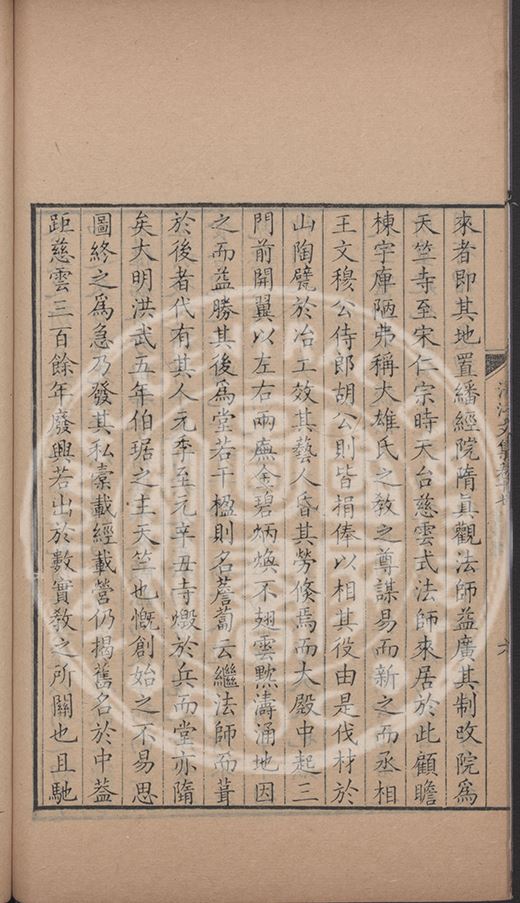 來者即其地置繙經院隋真觀法師益廣其制改院為
天竺寺至宋仁宗時天台慈雲式法師來居於此顧瞻
棟宇庳陋弗稱大雄氏之教之尊謀易而新之而丞相
王文穆公侍郎胡公則皆捐俸以相其役由是伐材於
山陶甓於冶工效其藝人昏其勞倏焉而大殿中起三
門前開翼以左右兩廡金碧炳煥不翅雲黙濤涌地因
之而益勝其後為堂若干楹則名薝蔔云繼法師而葺
於後者代有其人元季至元辛丑寺燬於兵而堂亦隋
矣大明洪武五年伯琚之主天竺也慨創始之不易思
圖終之為急乃發其私橐載經載營仍揭舊名於中葢
距慈雲三百餘年廢興若出於數實教之所關也且馳
六